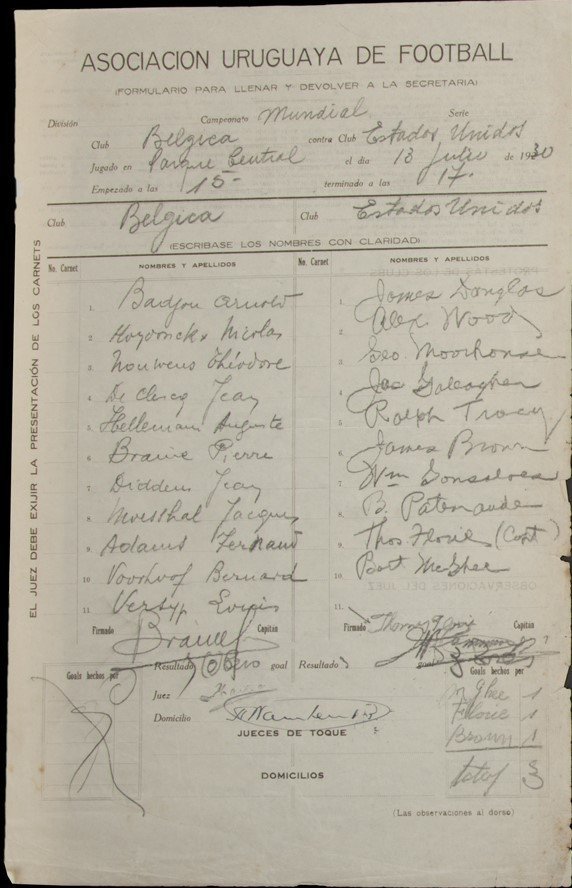 ASOCIACION URUGUAYA DE FOOTBALL
(FORMULARIO PARA LLENAR Y DEVOLVER A LA SECRETARIA)
División Campeonato Mundial Serie
Club Belgica contra Club Estados Unidos
Jugado en Parque Central el día 13 Julio de 1930
Empezado a las 15- terminado a las 17.
Club Belgica Club Estados Unidos
(ESCRIBASE LOS NOMBRES CON CLARIDAD)
EL JUEZ DEBE EXIJIR LA PRESENTACIÓN DE LOS CARNETS
No. Carnet NOMBRES Y APELLIDOS No. Carnet NOMBRES Y APELLIDOS
1. Badjou Arnold 1. James Douglas
2. Hoydonckx Nicolas 2. Alex Wood
3. Nouwens Théodore 3. Geo. Moorhouse
4. De Clercq Jean 4. Jas Galeagher
5. Hellemans Auguste 5. Ralph Tracey
6. Braine Pierre 6. James Brown
7. Diddens Jean 7. Wm Gonsalves
8. Moesthal Jacques 8. B. Patenaude
9. Adams Fernand 9. Thos Florie (Capt)
10. Voorhoof Bernard 10. Bart McGhee
11. Versyp 11.
Firmado Braine Capitán Firmado Thomas Florie Capitán
Resultado 0 goal Resultado 3 goal
Goals hechos por Goals hechos por
Juez
Domicilio
JUECES DE TOQUE
DOMICILIOS
McGhee 1
Florie 1
Brown 1
total 3
(Las observaciones al dorso)